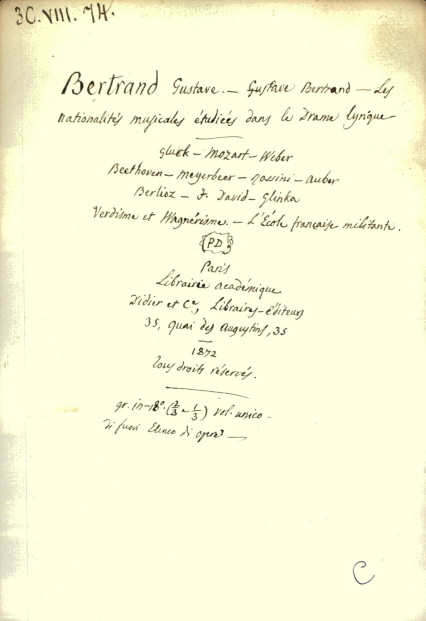 3C.VIII.74.
Bertrand Gustave. — Gustave Bertrand — Les
nationalités musicales étudiées dans le Drame lyrique
Gluck — Mozart — Weber
Beethoven — Meyerbeer — Rossini — Auber
Berlioz — F. David — Glinka
Verdisme et Wagnérisme. — L'École française militante.
PD
Paris
Librairie académique
Didier et Cᵉ, Libraires-éditeurs
35, quai des Augustins, 35
1872
Tous droits réservés.
gr. in-18° (2/3 - 1/3) vol. unico -
di fuori Elenco di opere —
C